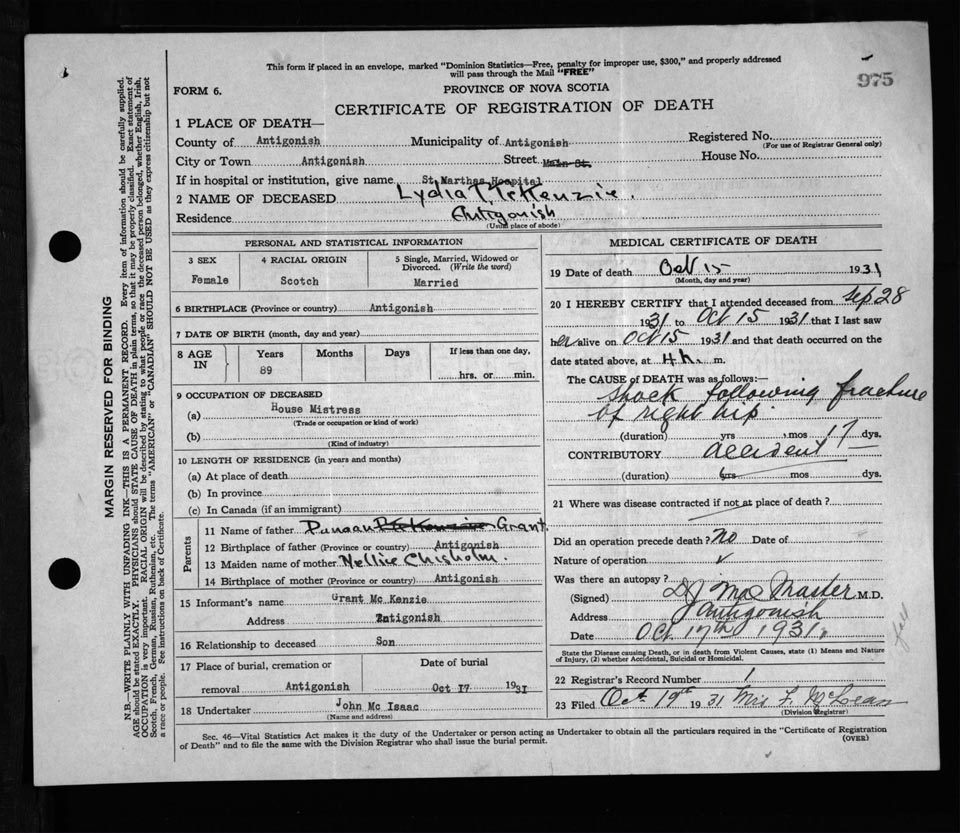 This form if placed in an envelope, marked "Dominion Statistics—Free, penalty for improper use, $300," and properly addressed
will pass through the Mail "FREE"
975
FORM 6.
PROVINCE OF NOVA SCOTIA
CERTIFICATE OF REGISTRATION OF DEATH
1 PLACE OF DEATH—
County of Antigonish Municipality of Antigonish Registered No.
(For use of Registrar General only)
City or Town Antigonish Street Main St. House No.
If in hospital or institution, give name St Marthas Hospital
2 NAME OF DECEASED Lydia McKenzie.
Residence Antigonish
(Usual place of abode)
PERSONAL AND STATISTICAL INFORMATION
3 SEX 4 RACIAL ORIGIN 5 Single, Married, Widowed or
Divorced. (Write the word)
Female Scotch Married
6 BIRTHPLACE (Province or country) Antigonish
7 DATE OF BIRTH (month, day and year)
8 AGE IN Years Months Days If less than one day,
89 hrs. or min.
9 OCCUPATION OF DECEASED
(a) House Mistress
(Trade or occupation or kind of work)
(b)
(Kind of industry)
10 LENGTH OF RESIDENCE (in years and months)
(a) At place of death
(b) In province
(c) In Canada (if an immigrant)
Parents
11 Name of father Dunaan McKenzie Grant.
12 Birthplace of father (Province or country) Antigonish
13 Maiden name of mother Nellie Chisholm.
14 Birthplace of mother (Province or country) Antigonish
15 Informant's name Grant Mc Kenzie
Address Antigonish
16 Relationship to deceased Son
17 Place of burial, cremation or Date of burial
removal Antigonish Oct 17 1931
18 Undertaker John Mc Isaac
(Name and address)
MEDICAL CERTIFICATE OF DEATH
19 Date of death Oct 15 1931
(Month, day and year)
20 I HEREBY CERTIFY that I attended deceased from Sep 28
1931 to Oct 15 1931 that I last saw
her alive on Oct 15 1931 and that death occurred on the
date stated above, at 4 h. m.
The CAUSE of DEATH was as follows:—
Shock following fracture
of right hip
(duration) yrs mos 17 dys.
CONTRIBUTORY accident
(duration) yrs mos dys.
21 Where was disease contracted if not at place of death?
Did an operation precede death? No Date of
Nature of operation
Was there an autopsy?
(Signed) MacMaster M.D.
Address Antigonish
Date Oct 17th 1931
State the Disease causing Death, or in death from Violent Causes, state (1) Means and Nature
of Injury, (2) whether Accidental, Suicidal or Homicidal.
22 Registrar's Record Number 1
23 Filed Oct 19th 1931 Mrs F. McLean
(Division Registrar)
Sec. 46—Vital Statistics Act makes it the duty of the Undertaker or person acting as Undertaker to obtain all the particulars required in the "Certificate of Registration
of Death" and to file the same with the Division Registrar who shall issue the burial permit.
(OVER)
MARGIN RESERVED FOR BINDING
N.B.—WRITE PLAINLY WITH UNFADING INK—THIS IS A PERMANENT RECORD. Every item of information should be carefully supplied.
AGE should be stated EXACTLY. PHYSICIANS should STATE CAUSE OF DEATH in plain terms, so that it may be properly classified. Exact statement of
OCCUPATION is very important. RACIAL ORIGIN will be described by stating to what people or race the deceased person belonged, whether English, Irish,
Scotch, French, German, Russian, Ruthenian, etc. The terms "AMERICAN" or "CANADIAN" SHOULD NOT BE USED as they express citizenship but not
a race or people. See instructions on back of Certificate.